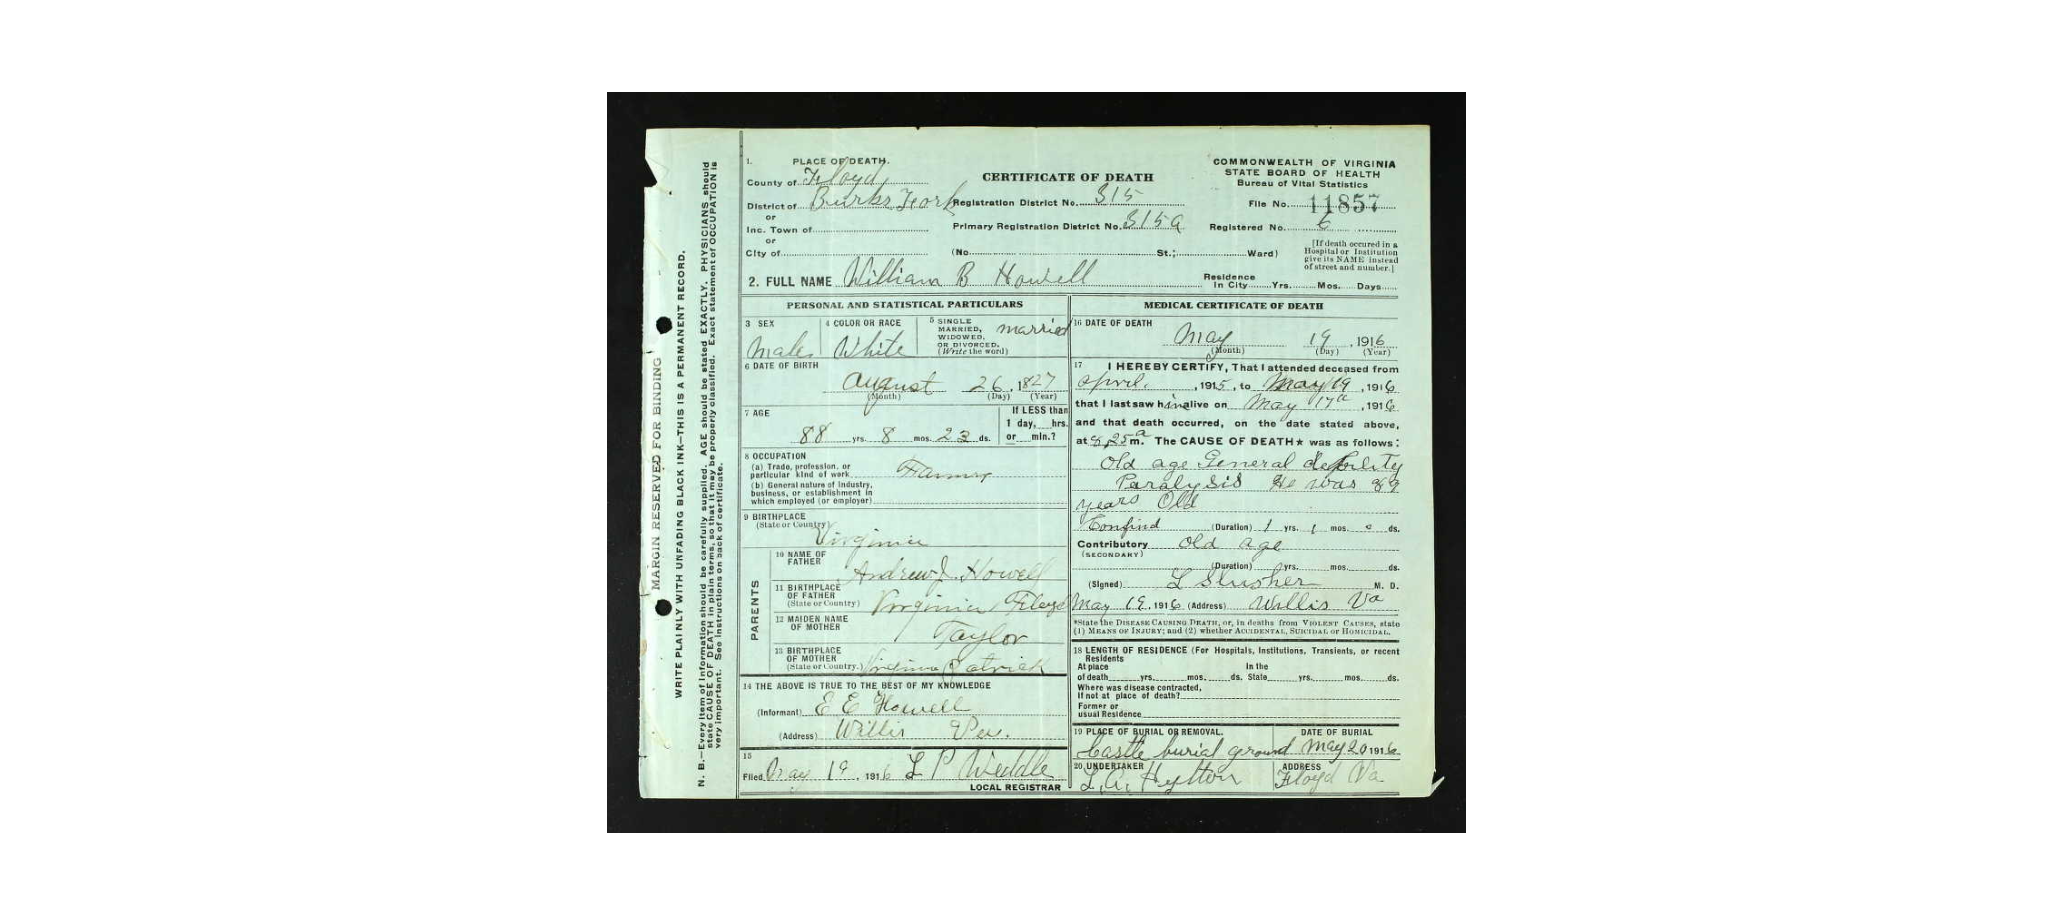 1. PLACE OF DEATH.
County of Floyd
District of Burks Fork
or
Inc. Town of
or
City of
CERTIFICATE OF DEATH
Registration District No. 315
Primary Registration District No. 315a
(No. St.; Ward)
COMMONWEALTH OF VIRGINIA
STATE BOARD OF HEALTH
Bureau of Vital Statistics
File No. 11857
Registered No. 6
[If death occured in a
Hospital or Institution
give its NAME instead
of street and number.]
2. FULL NAME William B Howell
Residence
In City Yrs. Mos. Days
PERSONAL AND STATISTICAL PARTICULARS
3 SEX
Male
4 COLOR OR RACE
White
5 SINGLE
MARRIED,
WIDOWED,
OR DIVORCED.
(Write the word)
married
6 DATE OF BIRTH
August 26, 1827
(Month) (Day) (Year)
7 AGE
88 yrs. 8 mos. 23 ds.
If LESS than
1 day, hrs.
or min.?
8 OCCUPATION
(a) Trade, profession, or
particular kind of work Farmer
(b) General nature of industry,
business, or establishment in
which employed (or employer)
9 BIRTHPLACE
(State or Country)
Virginia
PARENTS
10 NAME OF
FATHER
Andrew J. Howell
11 BIRTHPLACE
OF FATHER
(State or Country) Virginia Floyd
12 MAIDEN NAME
OF MOTHER
Taylor
13 BIRTHPLACE
OF MOTHER
(State or Country.) Virginia Patrick
14 THE ABOVE IS TRUE TO THE BEST OF MY KNOWLEDGE
(Informant) E E Howell
(Address) Willis Va.
15
Filed May 19, 1916 L P Weddle
LOCAL REGISTRAR
MEDICAL CERTIFICATE OF DEATH
16 DATE OF DEATH
May 19, 1916
(Month) (Day) (Year)
17 I HEREBY CERTIFY, That I attended deceased from
april, 1915, to May 19, 1916
that I last saw him alive on May 17th, 1916
and that death occurred, on the date stated above,
at 8,25 a m. The CAUSE OF DEATH★ was as follows:
Old age General debility
Paralysis He was 89
years Old
Confind (Duration) 1 yrs. 1 mos. 0 ds.
Contributory old age
(SECONDARY)
(Duration) yrs. mos. ds.
(Signed) L Slusher M. D.
May 19, 1916 (Address) Willis Va
*State the DISEASE CAUSING DEATH, or, in deaths from VIOLENT CAUSES, state
(1) MEANS OF INJURY; and (2) whether ACCIDENTAL, SUICIDAL or HOMICIDAL.
18 LENGTH OF RESIDENCE (For Hospitals, Institutions, Transients, or recent
Residents
At place In the
of death yrs. mos. ds. State yrs. mos. ds.
Where was disease contracted,
If not at place of death?
Former or
usual Residence
19 PLACE OF BURIAL OR REMOVAL. DATE OF BURIAL
Castle burial ground May 20 1916
20 UNDERTAKER ADDRESS
L. A. Hylton Floyd Va
MARGIN RESERVED FOR BINDING
WRITE PLAINLY WITH UNFADING BLACK INK—THIS IS A PERMANENT RECORD.
N. B.—Every item of information should be carefully supplied. AGE should be stated EXACTLY. PHYSICIANS should
state CAUSE OF DEATH in plain terms, so that it may be properly classified. Exact statement of OCCUPATION is
very important. See instructions on back of certificate.